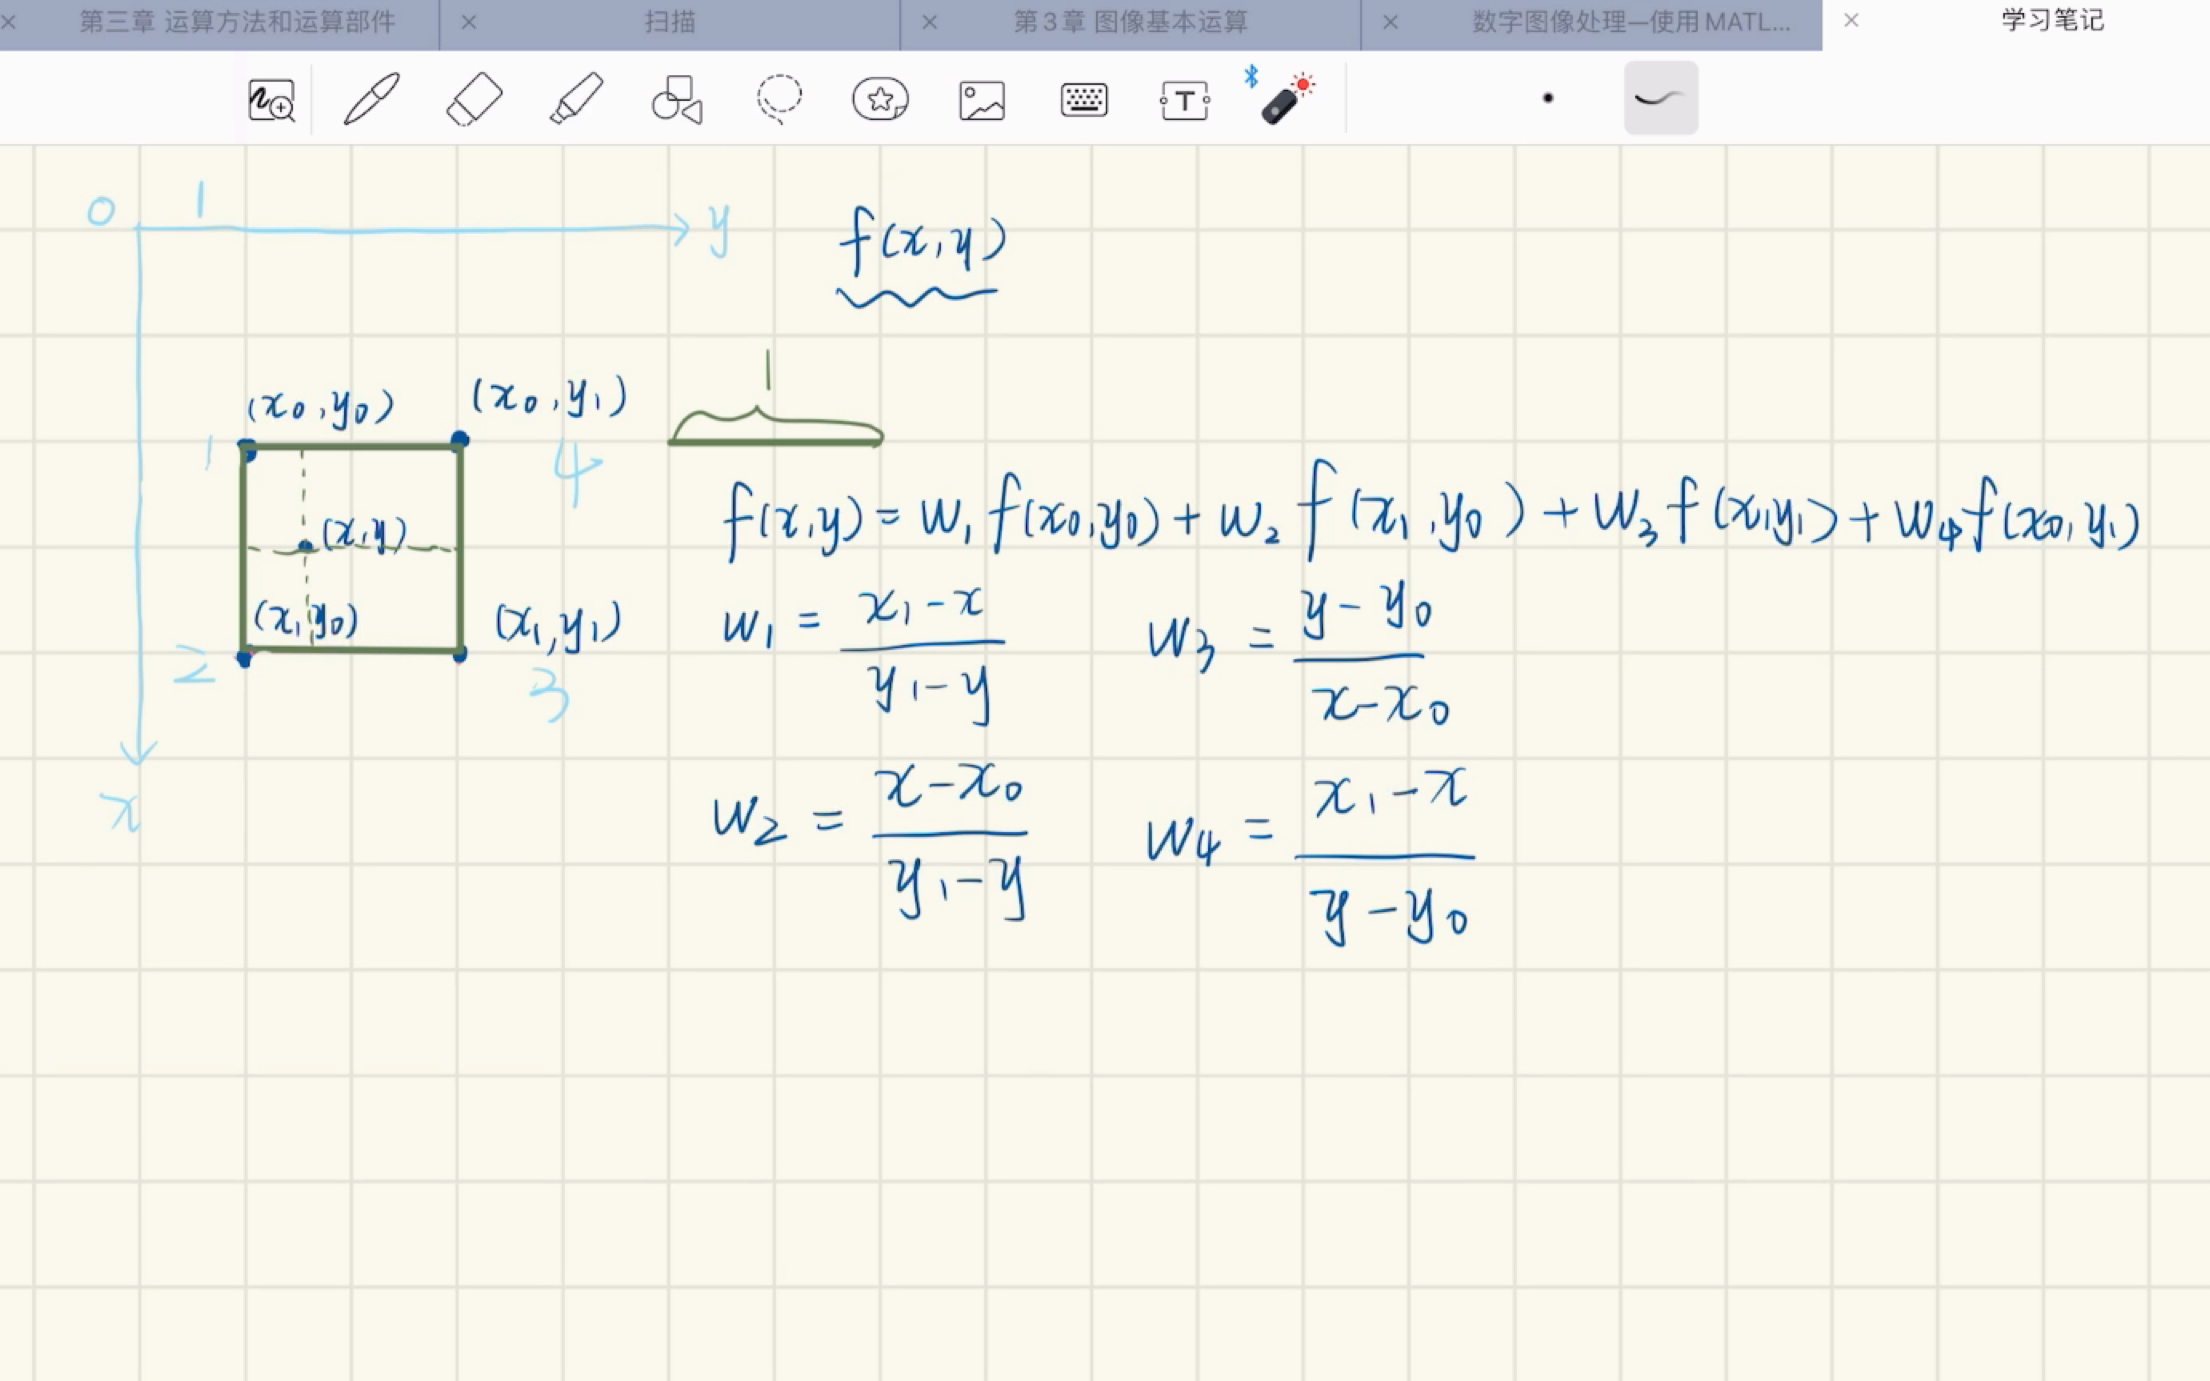 第三章 运算方法和运算部件
扫描
第3章 图像基本运算
数字图像处理—使用MATL...
学习笔记
T
0 1 y
f(x,y)
1
(x₀,y₀) (x₀,y₁)
1 4
(x,y)
f(x,y)=w₁f(x₀,y₀)+w₂f(x₁,y₀)+w₃f(x₁y₁)+w₄f(x₀,y₁)
(x₁y₀) (x₁,y₁)
2 3
w₁ = (x₁-x)/(y₁-y) w₃ = (y-y₀)/(x-x₀)
x
w₂ = (x-x₀)/(y₁-y) w₄ = (x₁-x)/(y-y₀)